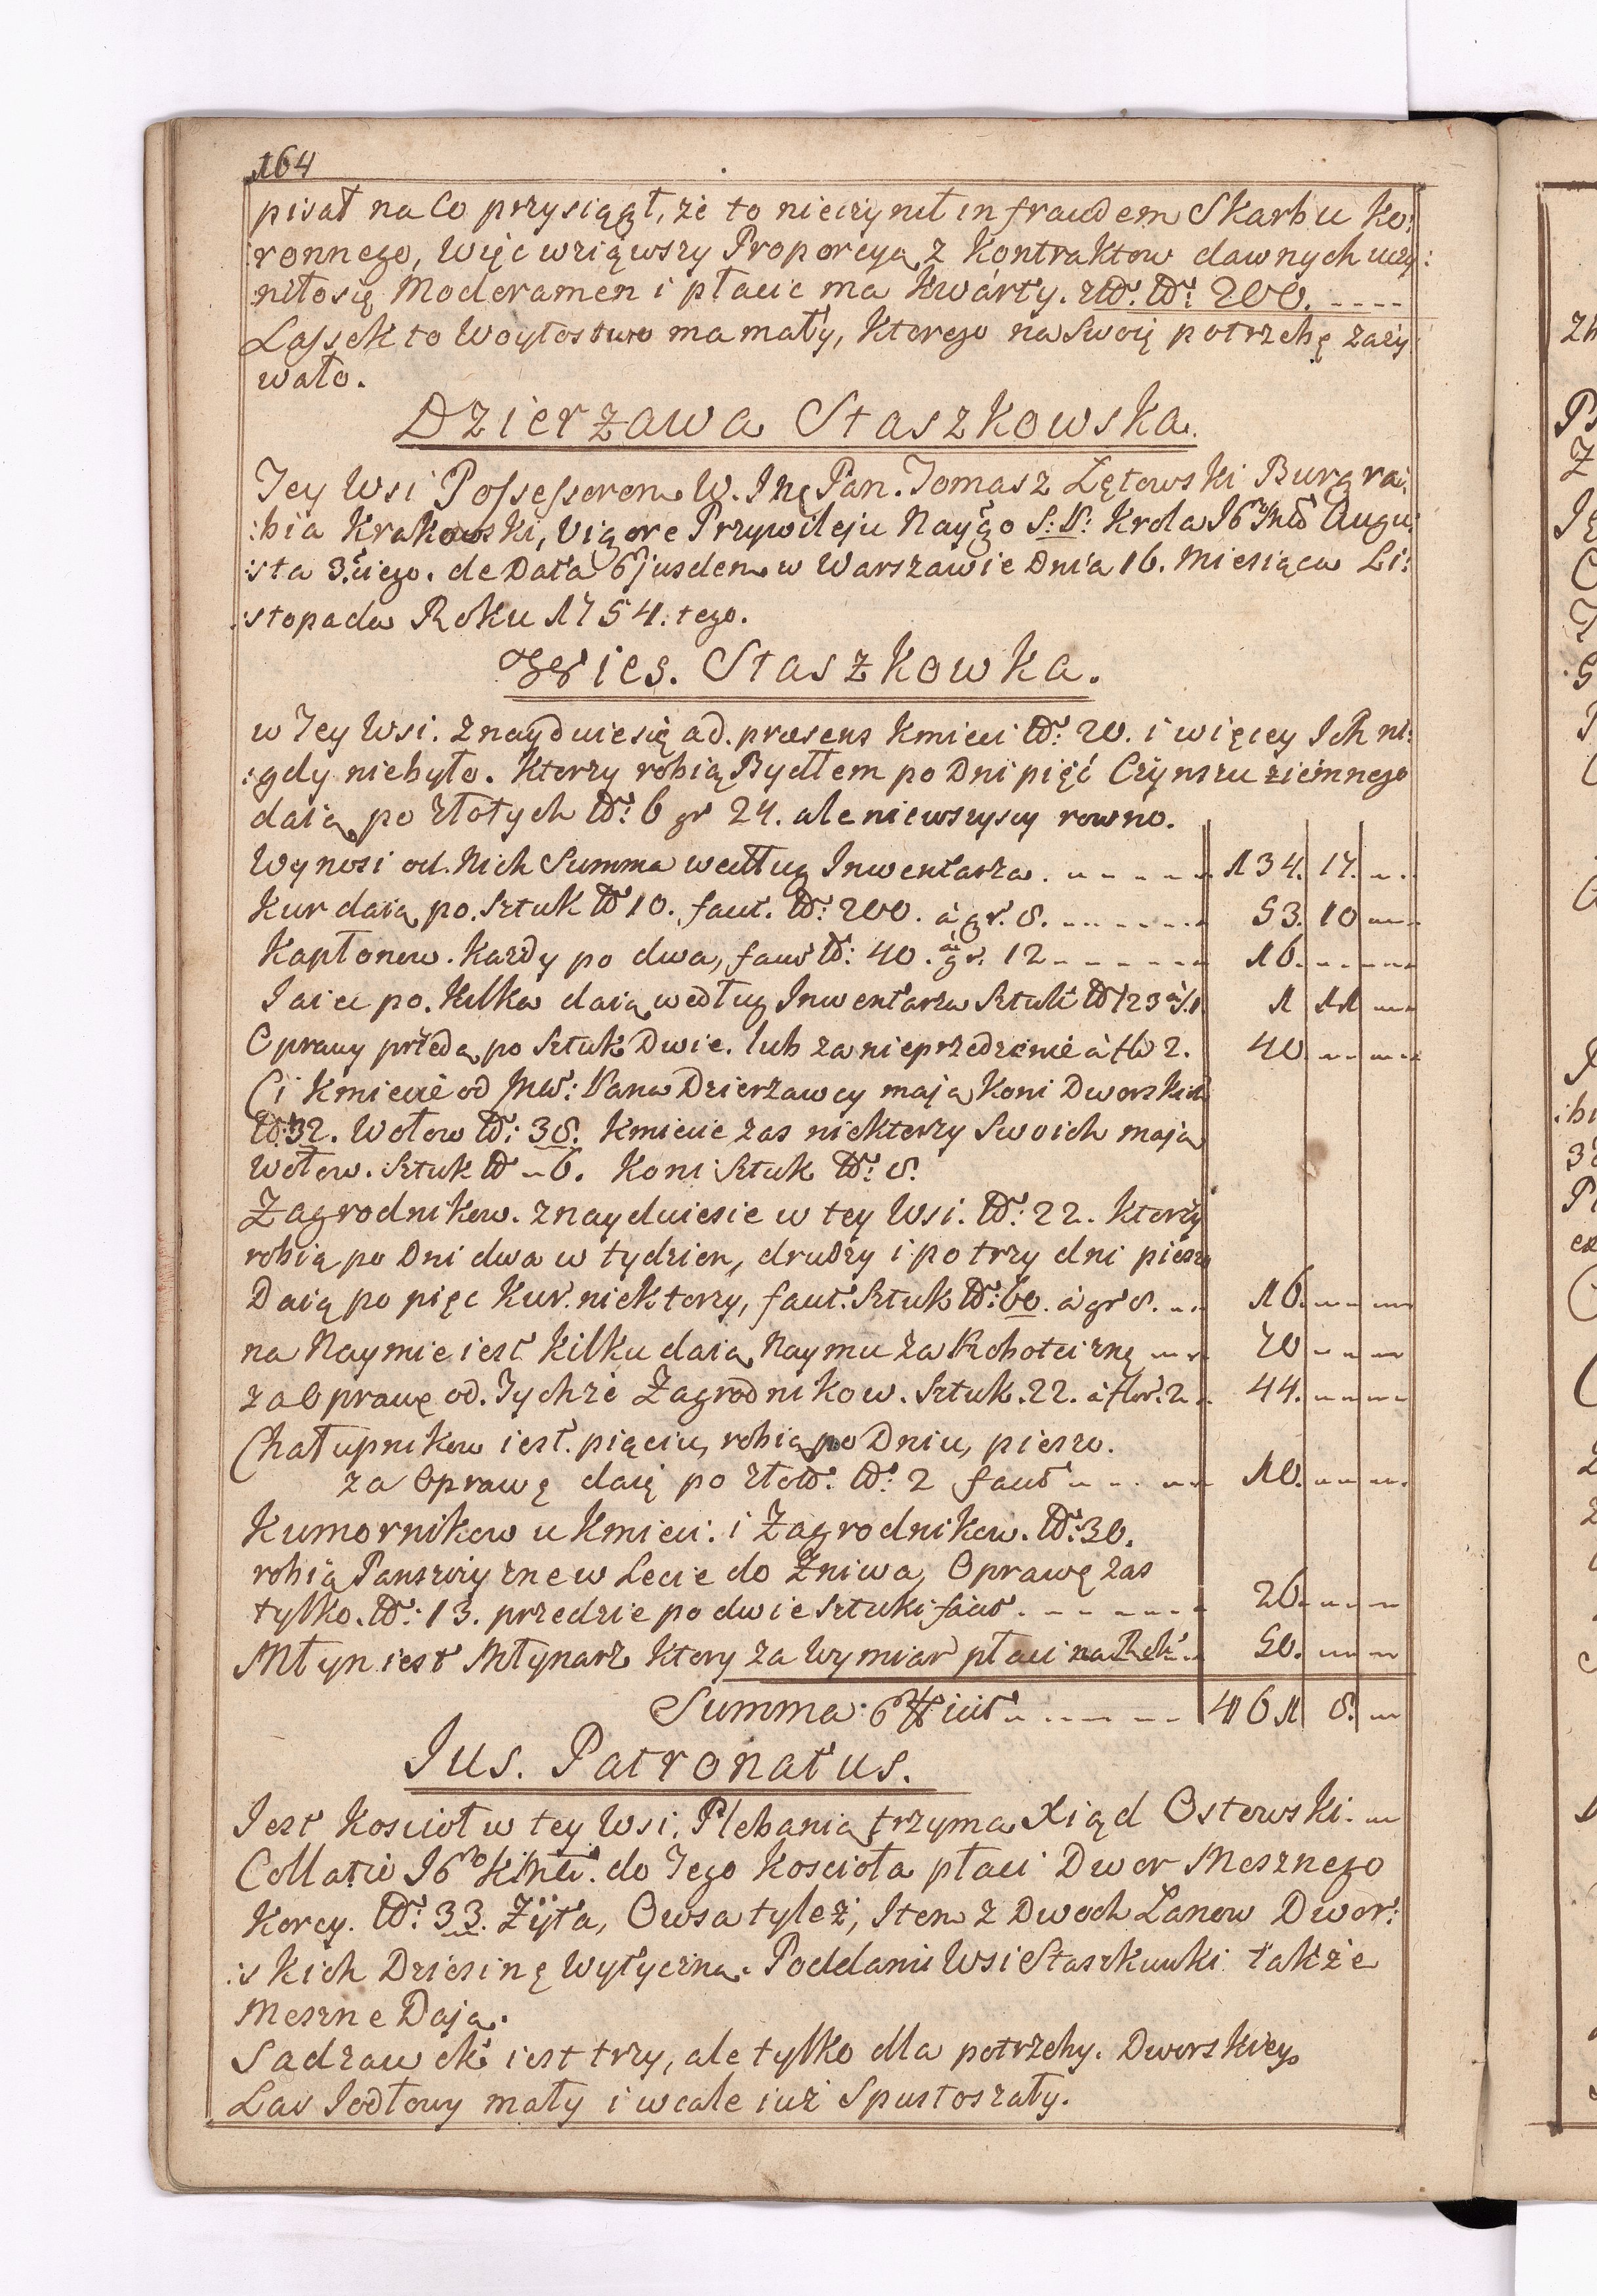 164
pisał na Co przysiągł, że to nieczynił in fraudem Skarbu Ko:
:ronnego, Więc wziąwszy Proporcyą z Kontraktow dawnych uczy:
niłosię Moderamen i płacic ma Kwarty. zł. No: 200. ----
Lassek to Woytostwo ma mały, Ktorego na Swoię potrzebę zaży
wało.
Dzierzawa Staszkowska.
Tey Wsi Possessorem W. Imć Pan. Tomasz Łętowski Burgra:
:bia Krakowski, Vigore Przywileju Nayśgo S: P: Krola Augu:
:sta 3.ciego. de Data Ejusdem w Warszawie Dnia 16. Miesiąca Li:
:stopada Roku 1754. tego.
Wies. Staszkowka.
w Tey Wsi. Znayduiesię ad. præsens Kmieci No: 20. i więcey Ich ni:
:gdy niebyło. Ktorzy robią Bydłem po Dni pięć Czynszu ziemnego
daią po złotych No: 6 gr 24. ale niewszyscy rowno.
Wynosi od. Nich Summa według Inwentarza. ----- 134. 17. --
Kur daią po. Sztuk No 10. faut. No: 200. à gr. 8. ------ 53. 10 --
Kapłonow. Kazdy po dwa, faut No: 40. à gr. 12 ------ 16. ----
Iaiec po. Kilka daią według Inwentarza Sztuk No 123 1 11 --
Oprawy przedą po Sztuk Dwie. lub za nieprzedzenie à fl 2. 40 ----
Ci Kmiecie od Pana Dzierzawcy mają Koni Dworskich
No: 32. Wołow No: 38. Kmiecie zas niektorzy Swoich mają
Wołow. Sztuk No - 6. Koni Sztuk No: 8.
Zagrodnikow. znayduiesie w tey Wsi. No: 22. Ktorzy
robią po Dni dwa w tydzien, drudzy i po trzy dni pieszo
Daią po pięc Kur. niektorzy, faut. Sztuk No: 60. à gr 8. -- 16. ----
na Naymie iest Kilku daią Naymu za Robociznę --- 20 ----
za Oprawę od. Tychże Zagrodnikow. Sztuk. 22. à flor. 2. - 44. ----
Chałupnikow iest. pięciu, robią po Dniu, pieszo.
za Oprawę daią po złot: No: 2 faut ------ 10. ----
Kumornikow u Kmieci. i Zagrodnikow. No: 30.
robią Panszczyznę w Lecie do Zniwa, Oprawę zas
tylko. No: 13. przedzie po dwie Sztuki faut. ------- 26. ----
Młyn iest Młynarz Ktory za Wymiar płaci na Rok. -- 50. ----
Summa Efficit ------ 461 8. --
Jus. Patronatus.
Iest Kosciół w tey Wsi. Plebanią trzyma Xiąd Ostowski. -
Collatio do Tego Kościoła płaci Dwor Mesznego
Korcy. No: 33. Zyta, Owsa tyleż, Item z Dwoch Łanow Dwor:
:skich Dziesinę Wytyczną. Poddani Wsi Staszkuwki także
Meszne Dają.
Sadzawek iest trzy, ale tylko dla potrzeby. Dworskiey
Las Iodłowy mały i wcale iuż Spustoszały.